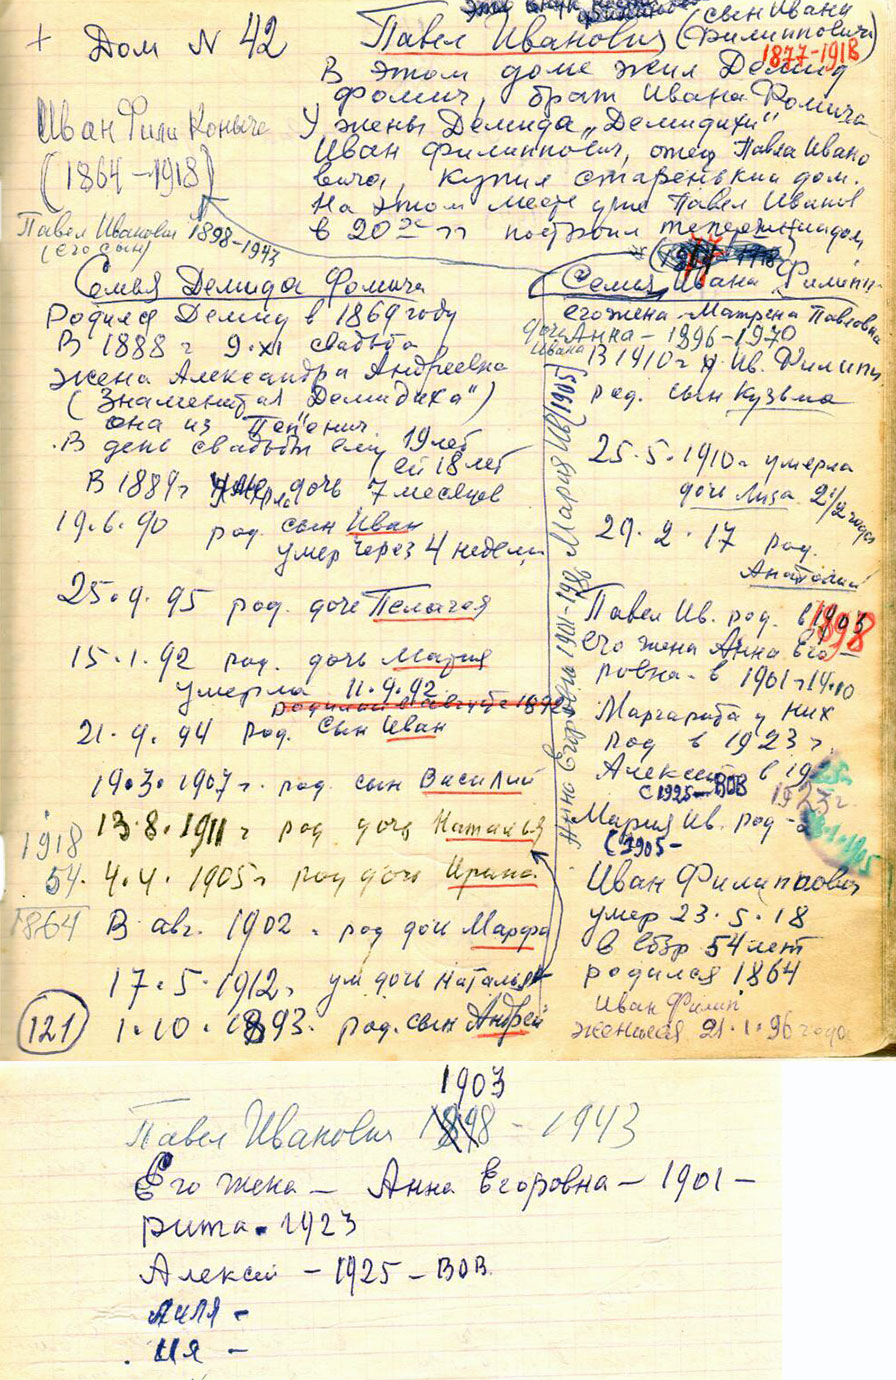 + Дом N 42
Павел Иванович (сын Ивана
Филипповича)
1877-1918
В этом доме жил Демид
Фомич, брат Ивана Фомича
У жены Демида "Демидихи"
Иван Филиппович, отец Павла Ивано
вича, купил старенький дом.
На этом месте уже Павел Иванов
в 20х гг построил
Иван Фили
(1864-1918)
Павел Иванович 1898-1943
(его сын)
Семья Демида Фомича
Родился Демид в 1869 году
В 1888 г 9.XI свадьба
жена Александра Андреевна
(Знаменитая "Демидиха")
она из
В день свадьбы ему 19 лет
ей 18 лет
В 1889 г умерла дочь 7 месяцев
19.6.90 род. сын Иван
умер через 4 недели
25.9.95 род. доче Пелагея
15.1.92 род. дочь Мария
умерла 11.9.92
21.9.94 род. сын Иван
19.3.1907 г. род. сын Василий
13.8.1911 г род дочь Наталья
4.4.1905 г род дочь Ирина
В авг. 1902 г род дочь Марфа
17.5.1912 г ум дочь Наталья
1.10.1893. род. сын Андрей
1918
54.
1864
121
Семья Ивана Филипп-
его жена-Матрена Павловна
дочь Анна-1896-1970
Ивана
В 1910 г у Ив. Филипп
род. сын Кузьма
25.5.1910 г умерла
дочь Лиза 2 1/2 года
29.2.17 род.
Анатолий
Анна Егоровна 1901-1986 Мария Ив (1905)
Павел Ив. род. в 1903
1898
его жена Анна Его-
ровна-в 1901 г 14.10
Маргарита у них
род в 1923 г.
Алексей в 19
с 1925-ВОВ
1925 г.
Мария Ив. род-
(1905-
Иван Филиппович
умер 23.5.18
в возр 54 лет
родился 1864
Иван Филип
женился 21.1.96 года
1903
Павел Иванович 1898-1943
Его жена-Анна Егоровна-1901-
рита.1923
Алексей-1925-ВОВ.
Лиля-
Ия-